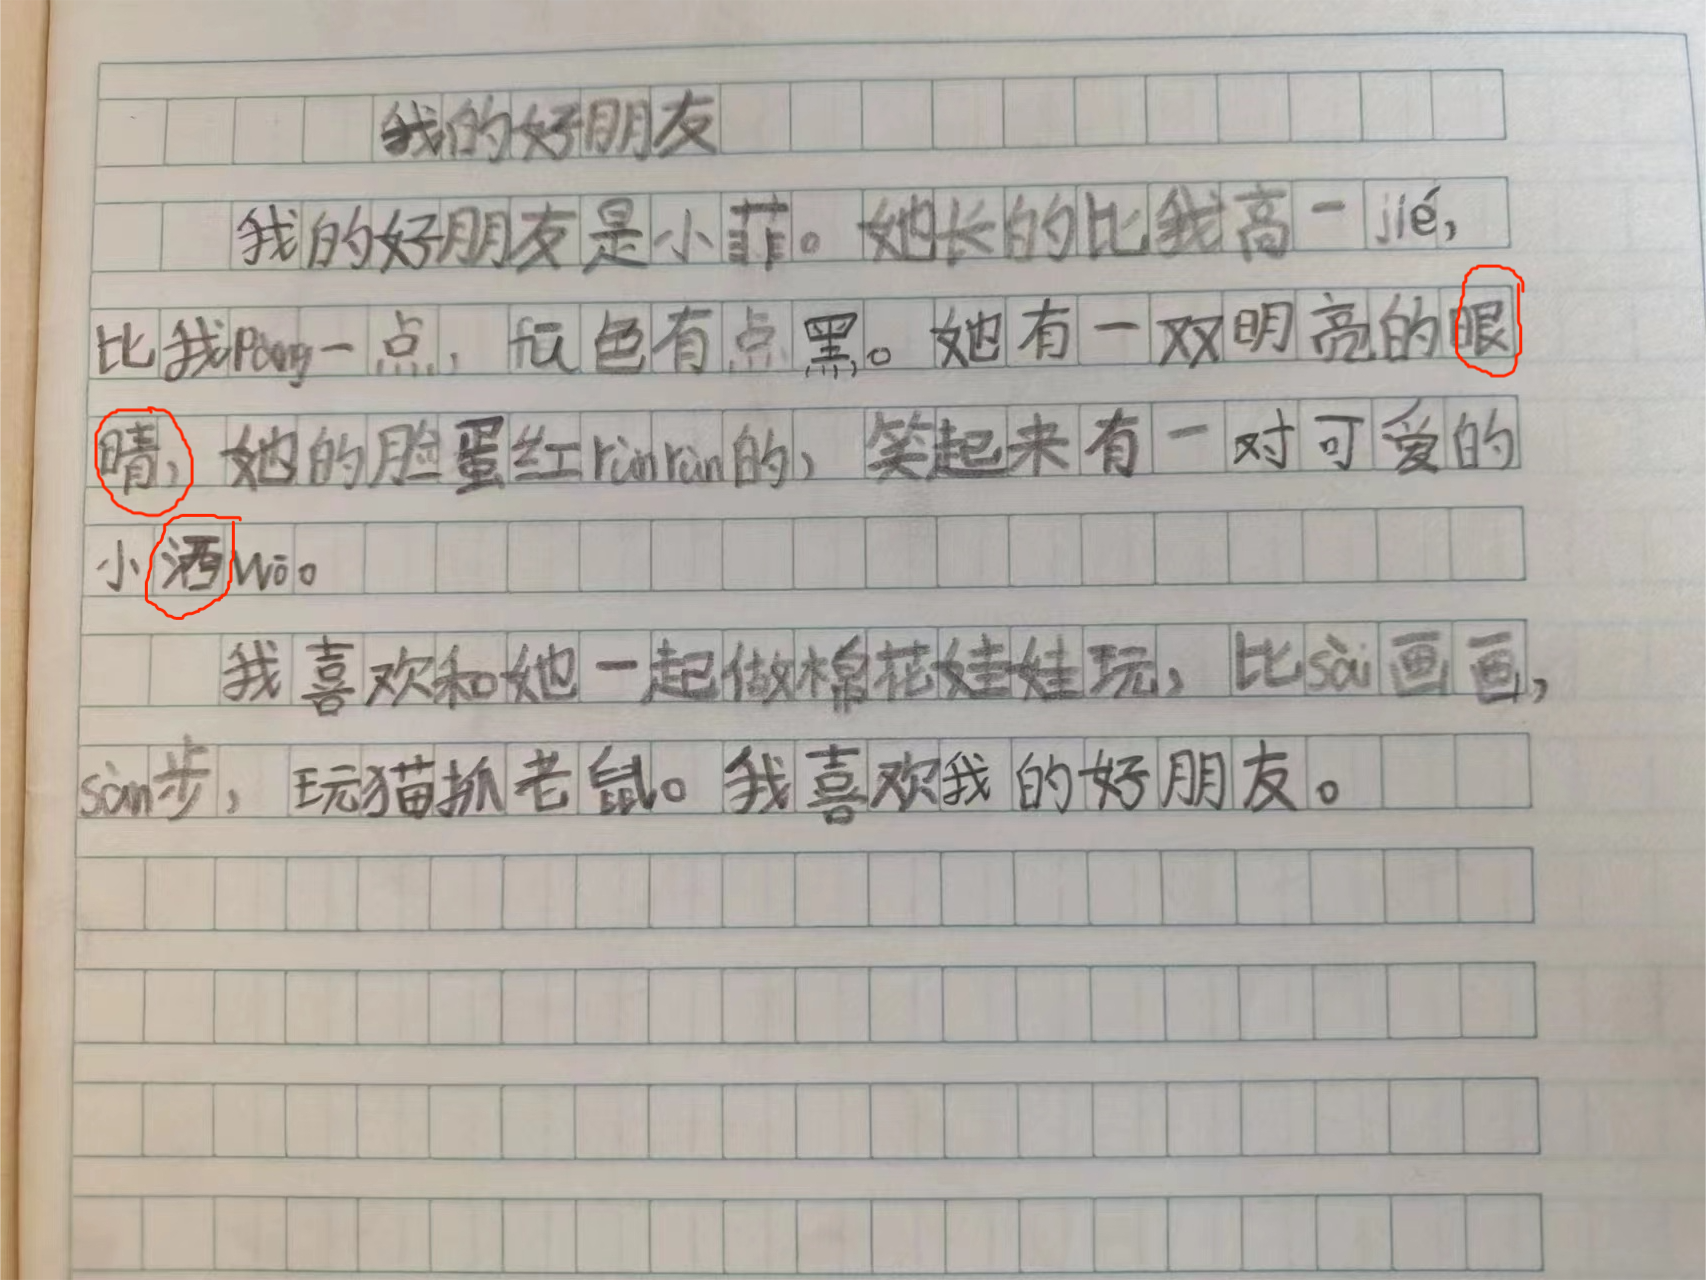 我的好朋友
我的好朋友是小菲。她长的比我高一jié,
比我pàng一点，fū色有点黑。她有一双明亮的眼
晴，她的脸蛋红rùnrùn的，笑起来有一对可爱的
小酒wō。
我喜欢和她一起做棉花娃娃玩，比sài画画，
sàn步，玩猫抓老鼠。我喜欢我的好朋友。